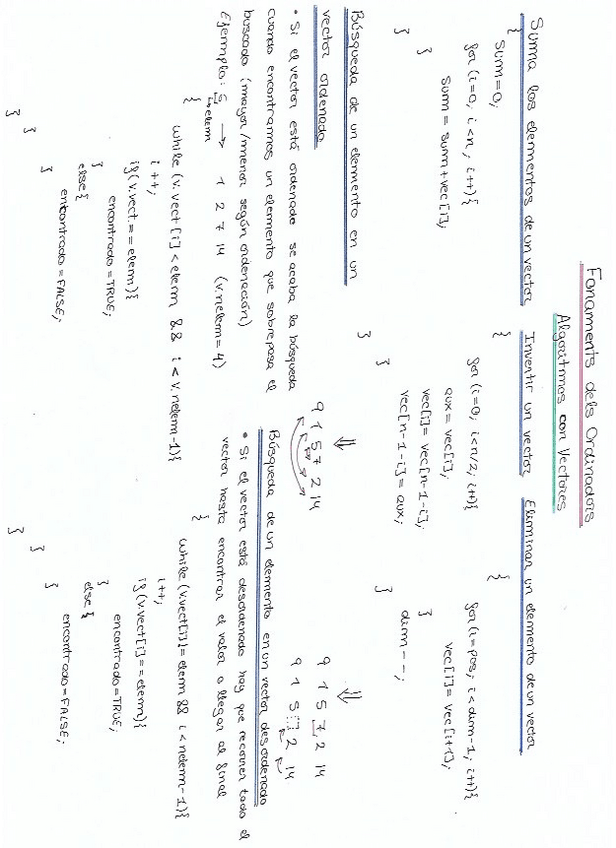 Fonaments dels Ordinadors
Algoritmos con Vectores
Suma los elementos de un vector
{
sum=0;
for (i=0; i<n; i++){
sum = sum+vec[i];
}
}
Invertir un vector
{
for (i=0; i<n/2; i++){
aux = vec[i];
vec[i]= vec[n-1-i];
vec[n-1-i]= aux;
}
}
⇓
9 1 5 7 2 14
Eliminar un elemento de un vector
{
for (i=pos; i<dim-1; i++){
vec[i]= vec[i+1];
}
dim--;
}
⇓
9 1 5 7 2 14
9 1 5 2 14
Búsqueda de un elemento en un
vector ordenado
• Si el vector está ordenado se acaba la búsqueda
cuando encontramos un elemento que sobrepasa el
buscado (mayor/menor según ordenación)
Ejemplo: 5 → 1 2 7 14 (v.nelem=4)
elem
{
while (v.vect[i]<elem && i<v.nelem-1){
i++;
if(v.vect==elem){
encontrado=TRUE;
}
else{
encontrado=FALSE;
}
}
}
Búsqueda de un elemento en un vector desordenado
• Si el vector está desordenado hay que recorrer todo el
vector hasta encontrar el valor o llegar al final
{
while (v.vect[i]!=elem && i<nelem-1){
i++;
if(v.vect[i]==elem){
encontrado=TRUE;
}
else{
encontrado=FALSE;
}
}
}